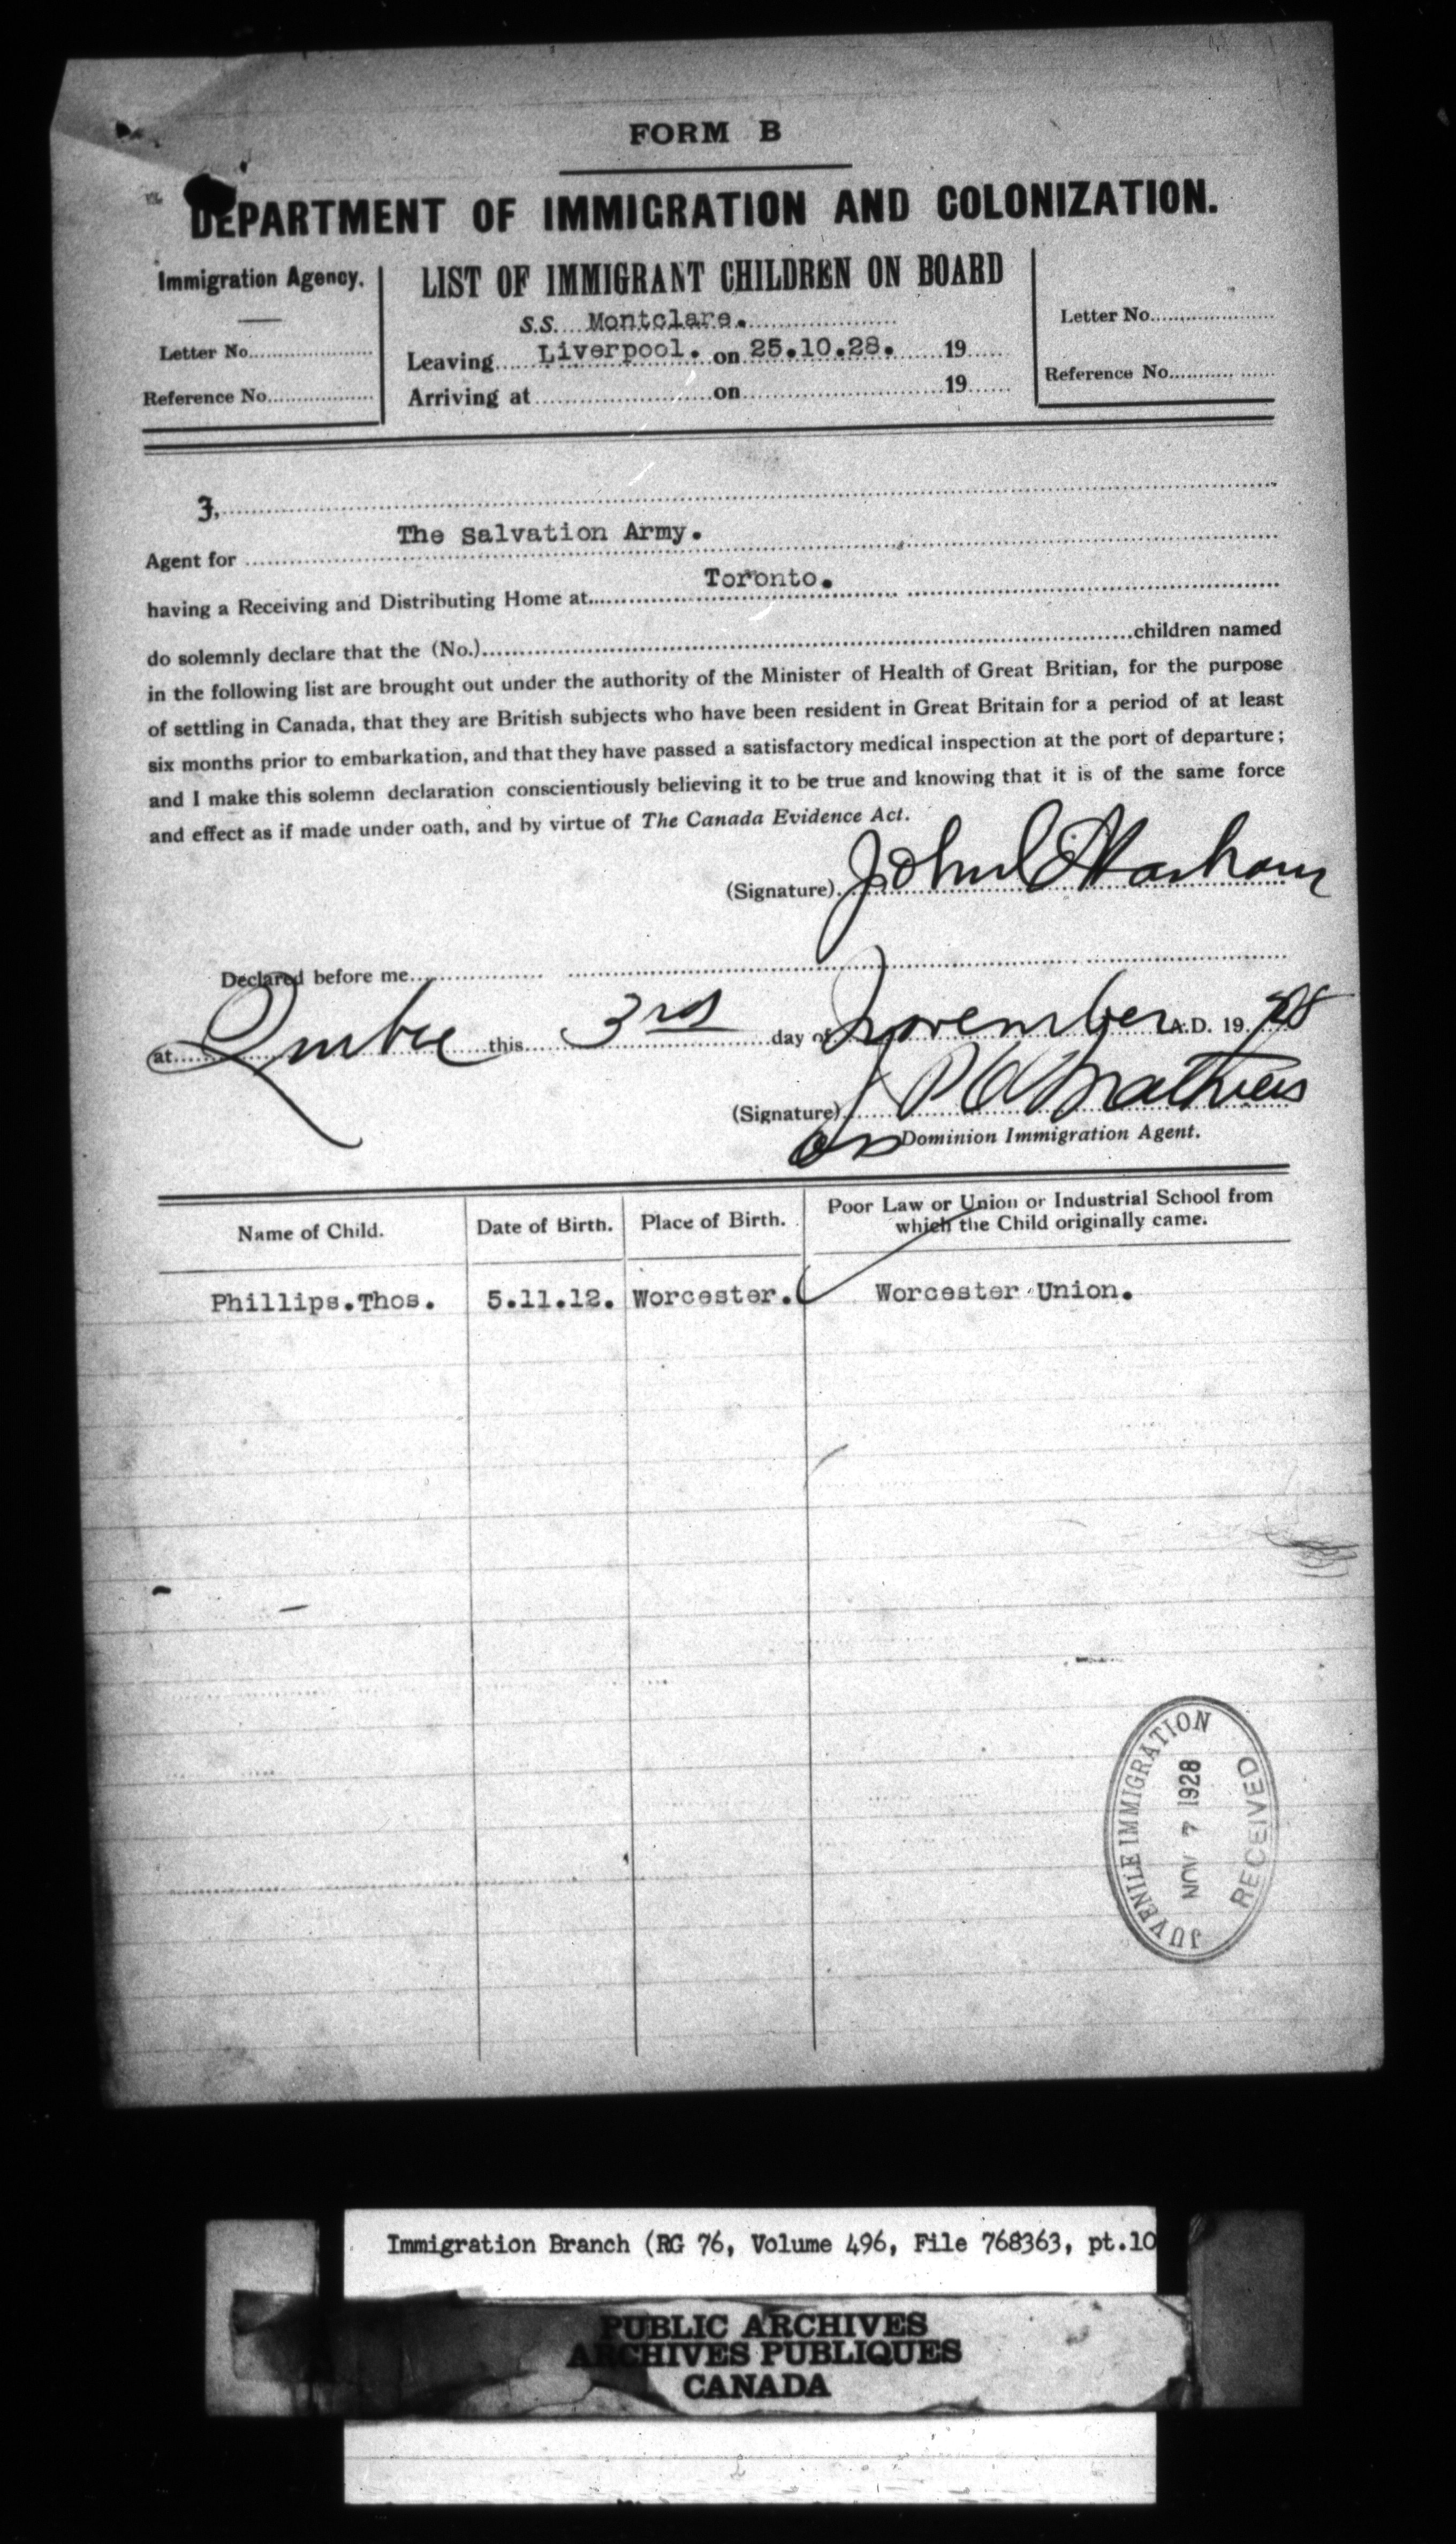 FORM B
DEPARTMENT OF IMMIGRATION AND COLONIZATION.
Immigration Agency.
Letter No.
Reference No.
LIST OF IMMIGRANT CHILDREN ON BOARD
S.S. Montclare.
Leaving Liverpool. on 25.10.28. 19
Arriving at on 19
Letter No.
Reference No.
Agent for The Salvation Army.
having a Receiving and Distributing Home at Toronto.
do solemnly declare that the (No.) children named
in the following list are brought out under the authority of the Minister of Health of Great Britian, for the purpose
of settling in Canada, that they are British subjects who have been resident in Great Britain for a period of at least
six months prior to embarkation, and that they have passed a satisfactory medical inspection at the port of departure;
and I make this solemn declaration conscientiously believing it to be true and knowing that it is of the same force
and effect as if made under oath, and by virtue of The Canada Evidence Act.
(Signature) John
Declared before me
at Quebec this 3rd day of November A.D. 19 28
(Signature)
Dominion Immigration Agent.
Name of Child. Date of Birth. Place of Birth. Poor Law or Union or Industrial School from
which the Child originally came.
Phillips.Thos. 5.11.12. Worcester. Worcester Union.
JUVENILE IMMIGRATION
NOV 7 1928
RECEIVED
Immigration Branch (RG 76, Volume 496, File 768363, pt.10
PUBLIC ARCHIVES
ARCHIVES PUBLIQUES
CANADA